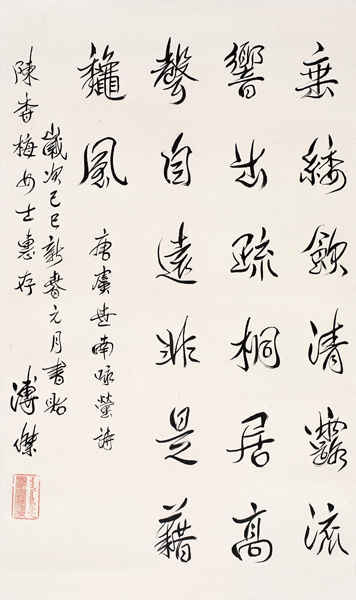 垂緌飲清露流
響出疏桐居高
聲自遠非是藉
龝風
唐虞世南咏螢詩
歲次己巳新春元月書貽
陳香梅女士惠存
溥傑